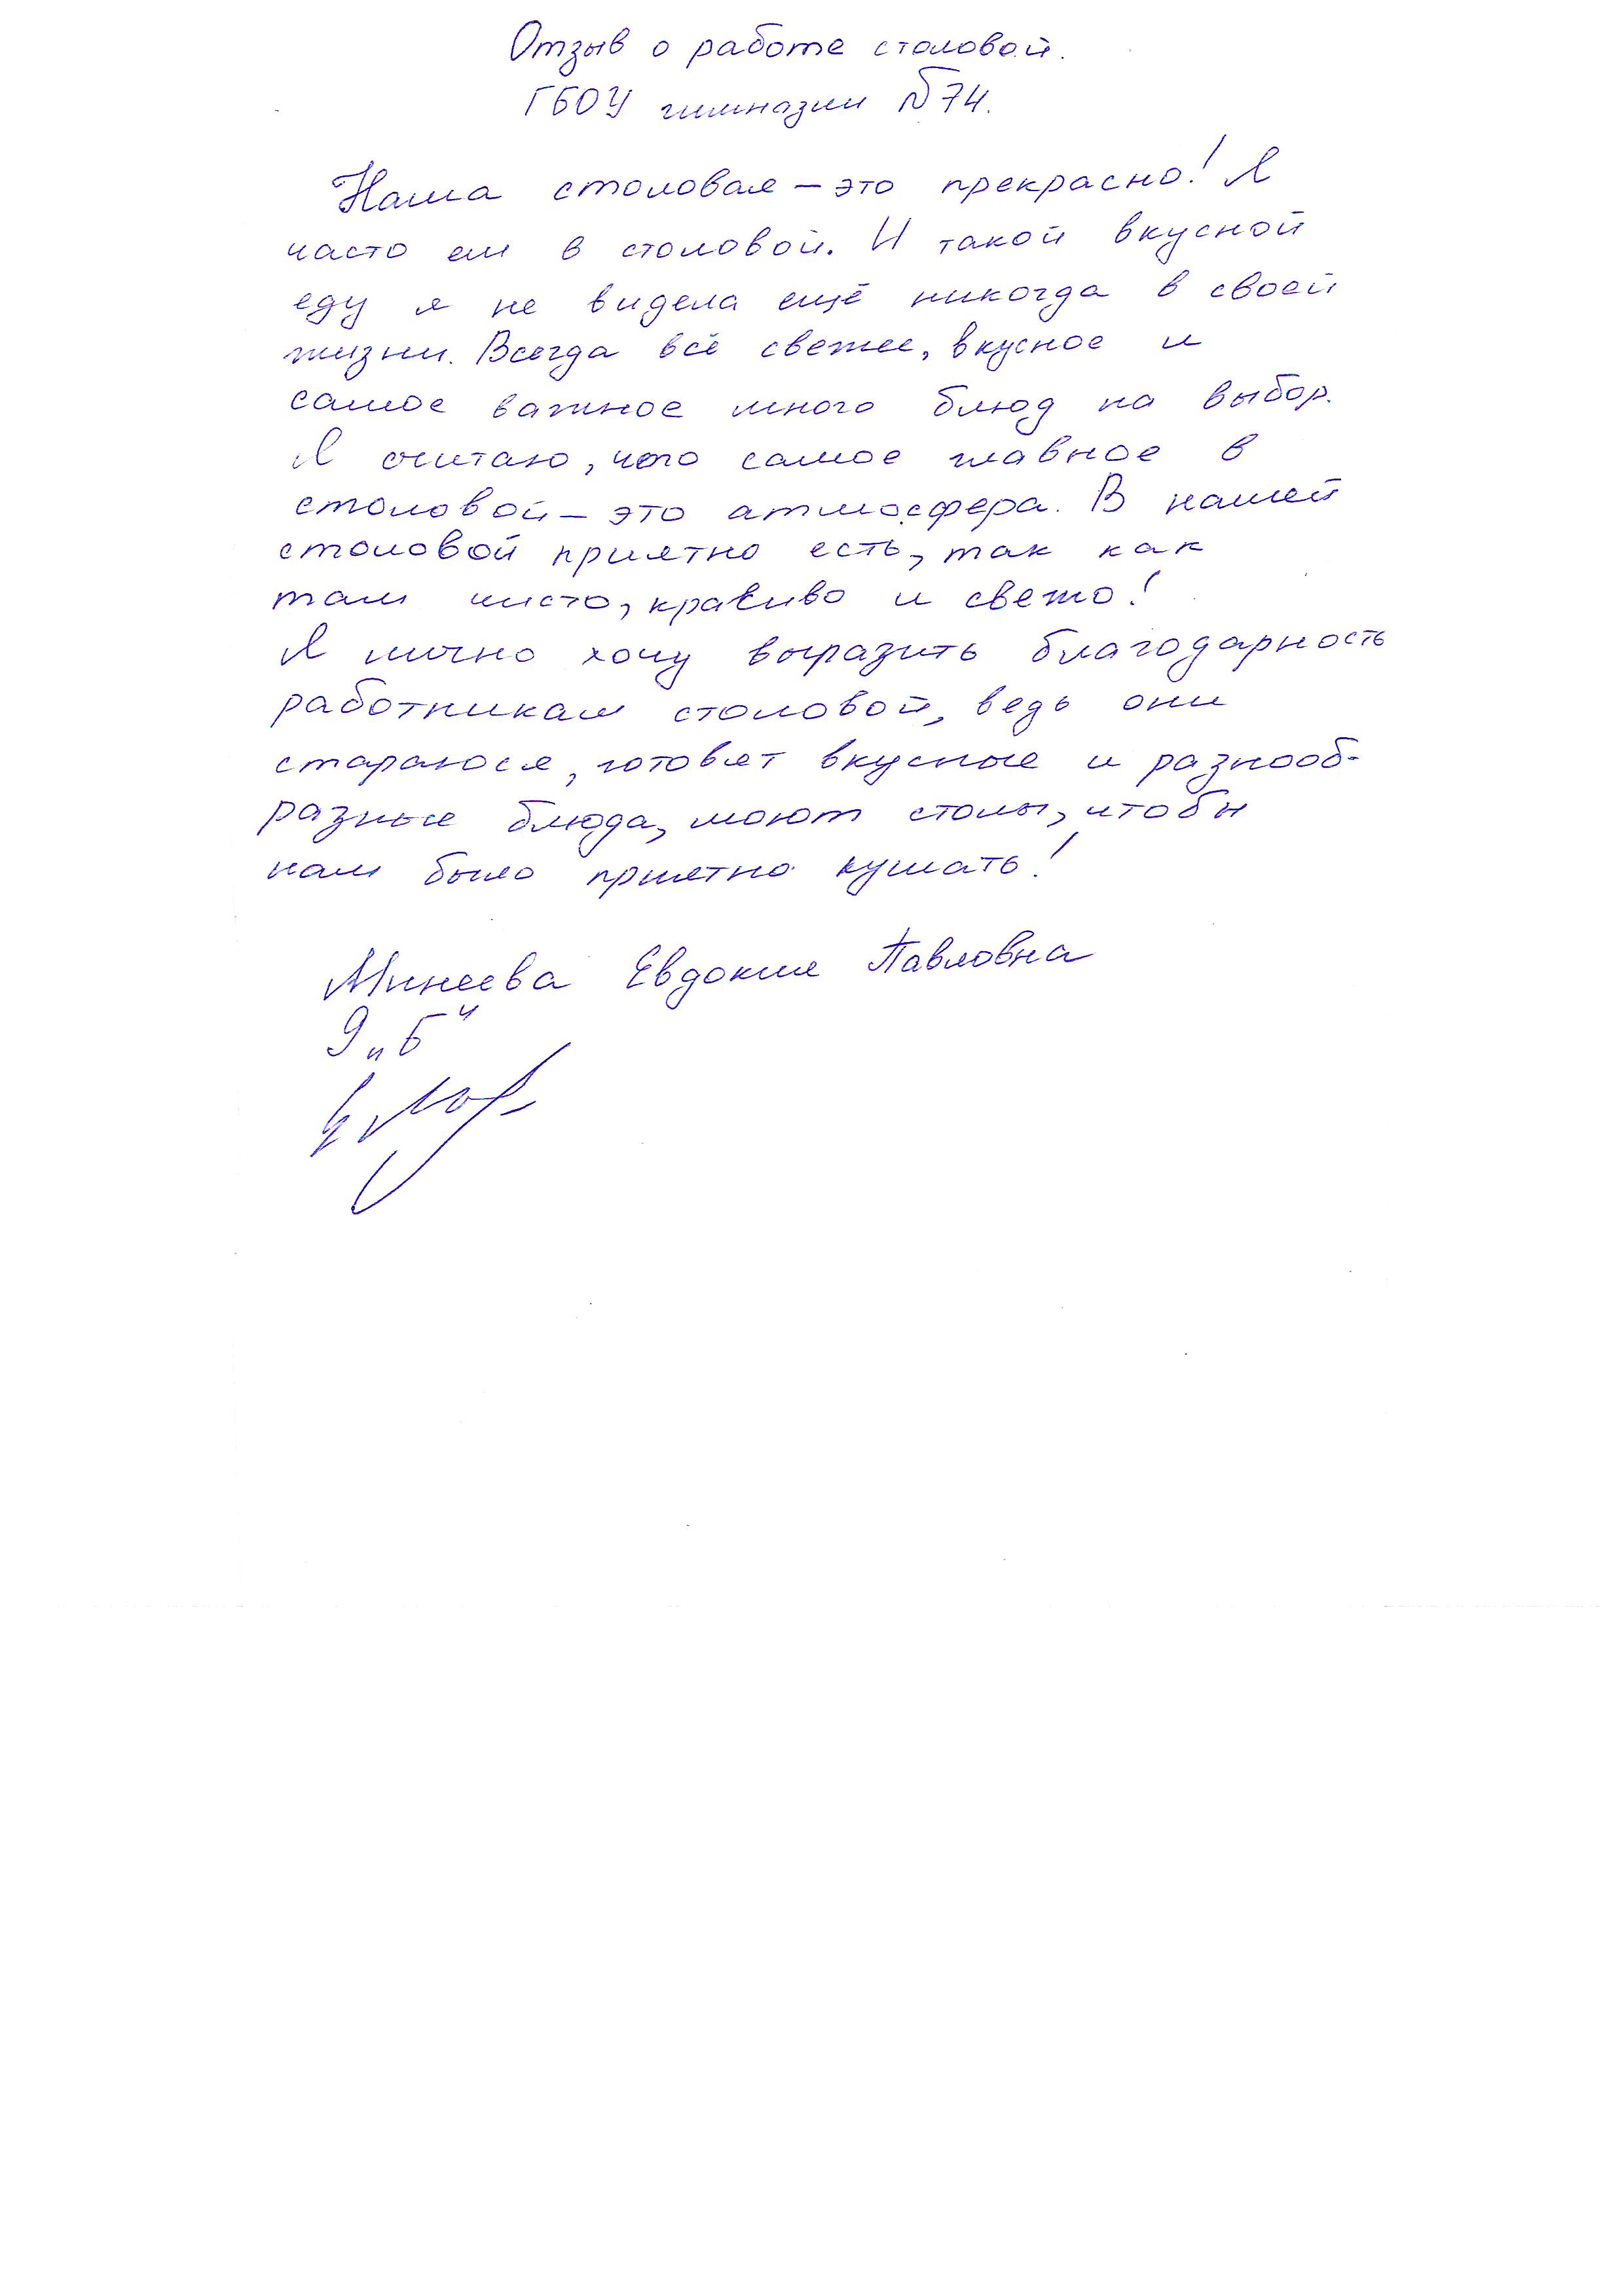 Отзыв о работе столовой.
ГБОУ гимназии №74.
Наша столовая – это прекрасно! Я
часто ем в столовой. И такой вкусной
еду я не видела ещё никогда в своей
жизни. Всегда всё свежее, вкусное и
самое важное много блюд на выбор.
Я считаю, что самое главное в
столовой – это атмосфера. В нашей
столовой приятно есть, так как
там чисто, красиво и светло!
Я лично хочу выразить благодарность
работникам столовой, ведь они
стараюся, готовят вкусные и разнооб-
разные блюда, моют столы, чтобы
нам было приятно кушать!
Минеева Евдокия Павловна
9 „Б“